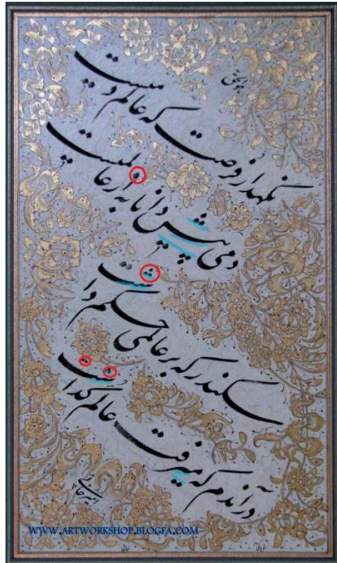 نگهدار فرصت که عالم دمیست
دمی پیش دانا به از عالمیست
سکندر که بر عالمی حکم داشت
در آندم که میرفت عالم گذاشت
امیرخانی
WWW.ARTWORKSHOP.BLOGFA.COM